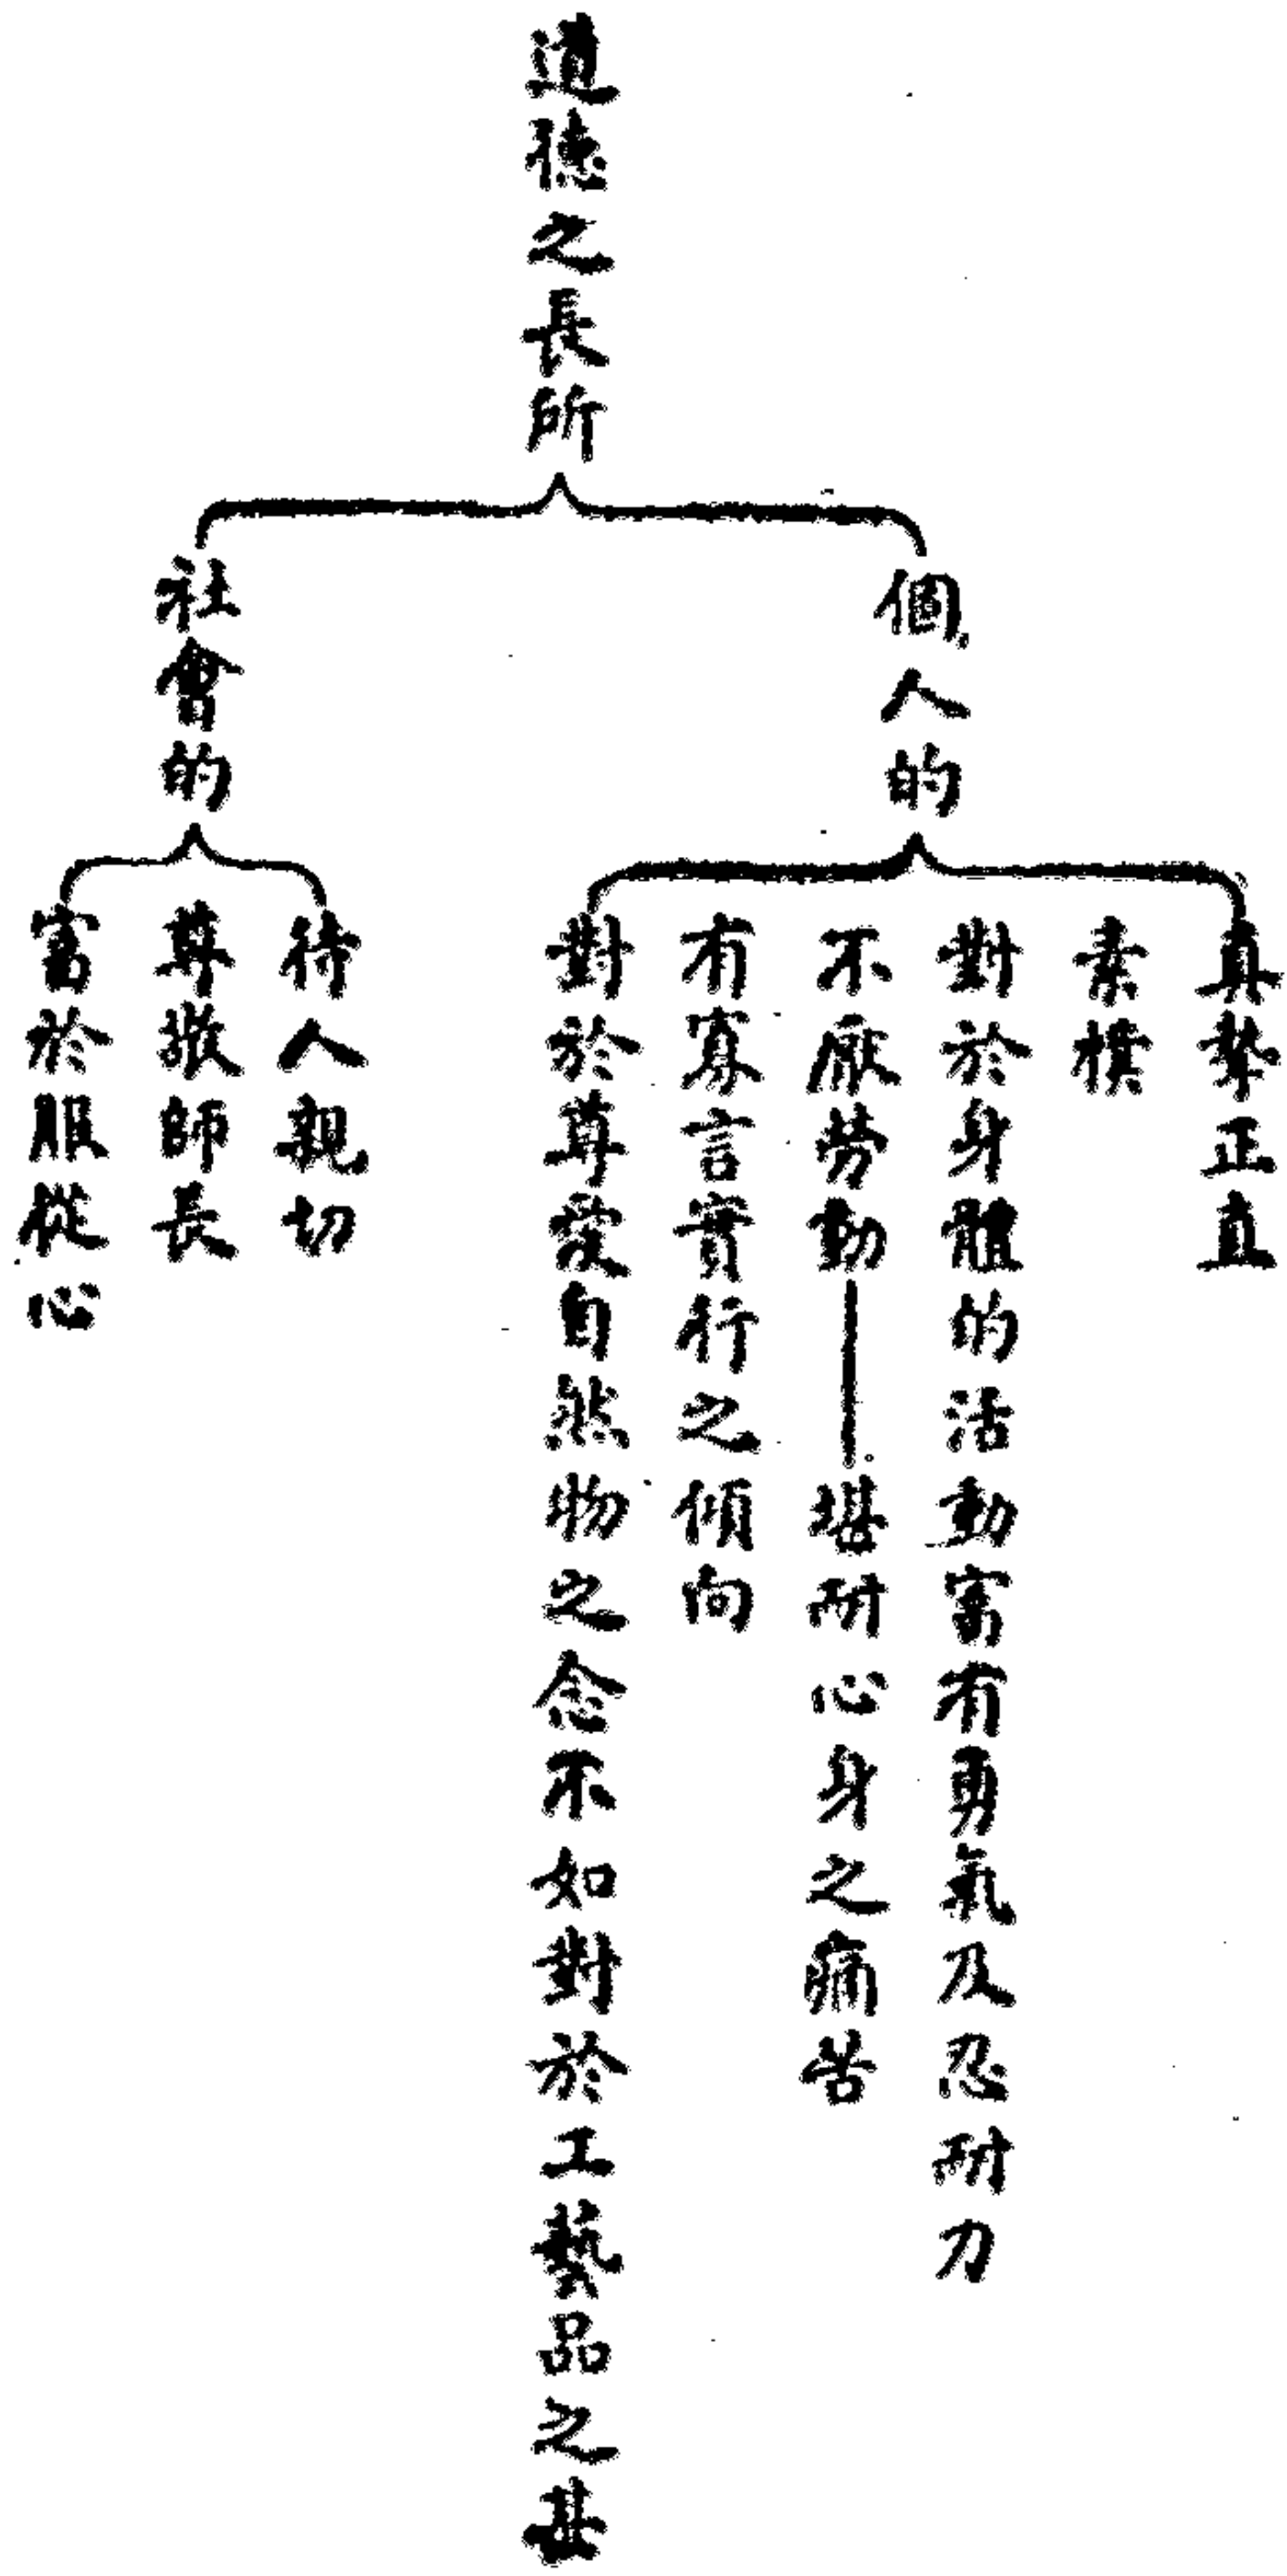 道德之長所
個人的
真摯正直
素樸
對於身體的活動富有勇氣及忍耐力
不厭勞動——堪耐心身之痛苦
有寡言實行之傾向
對於尊愛自然物之念不如對於工藝品之甚
社會的
待人親切
尊敬師長
富於服從心